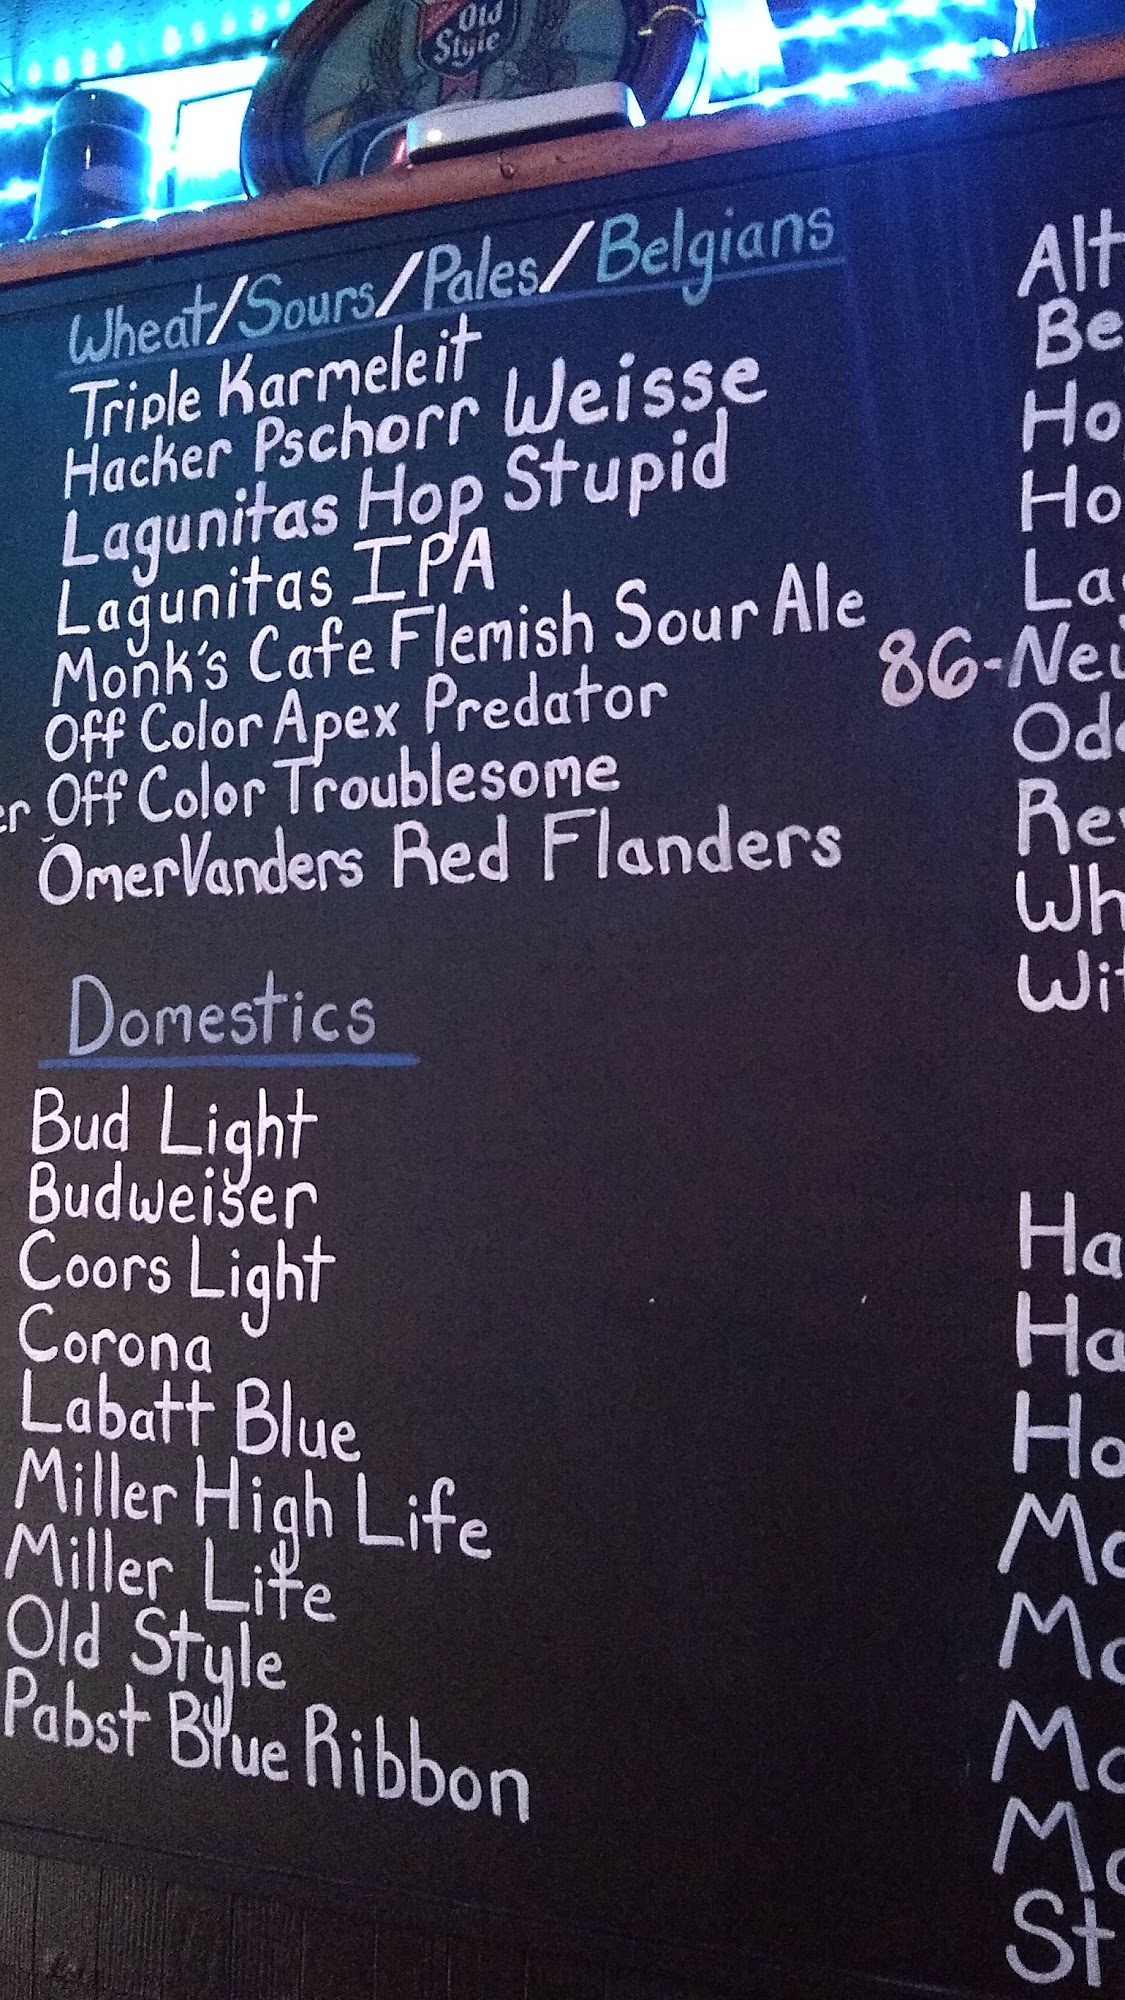 Old
Style
Wheat/Sours/Pales/Belgians
Triple Karmeleit
Hacker Pschorr Weisse
Lagunitas Hop Stupid
Lagunitas IPA
Monk's Cafe Flemish Sour Ale
Off Color Apex Predator
Off Color Troublesome
OmerVanders Red Flanders
Domestics
Bud Light
Budweiser
Coors Light
Corona
Labatt Blue
Miller High Life
Miller Lite
Old Style
Pabst Blue Ribbon
er
Alt
Be
Ho
Ho
La
86-Neu
Od
Re
Wh
Wit
Ha
Ha
Ho
Mo
Mo
Mo
Mo
St